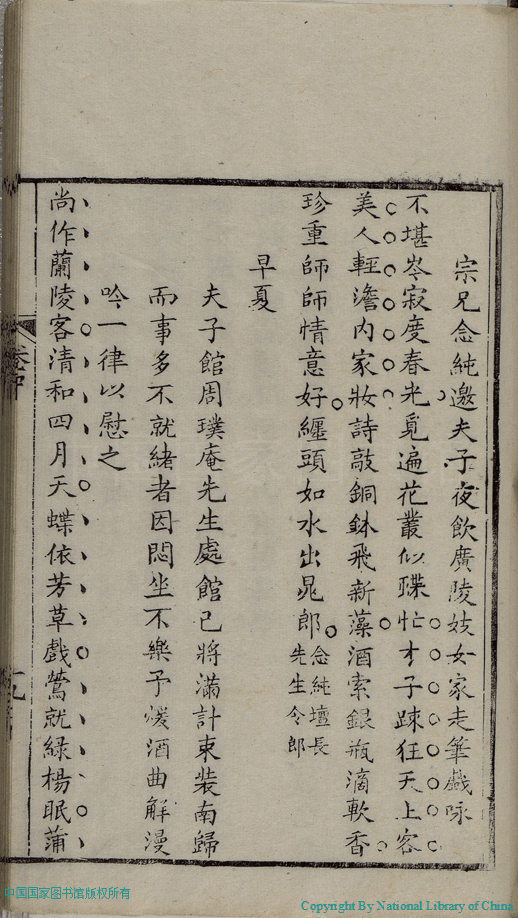 宗兄念純邀夫子夜飲廣陵妓女家走筆戲咏
不堪岑寂度春光覓遍花叢似蝶忙才子踈狂天上客
美人輕澹内家妝詩敲銅鉢飛新藻酒索銀瓶滴軟香
珍重師師情意好纏頭如水出晁郎念純壇長
先生令郎
早夏
夫子館周璞庵先生處館已將滿計束裝南歸
而事多不就緒者因悶坐不樂予煖酒曲解漫
吟一律以慰之
尚作蘭陵客清和四月天蝶依芳草戲鶯就綠楊眠蒲
卷中
中国国家图书馆版权所有
Copyright By National Library of China